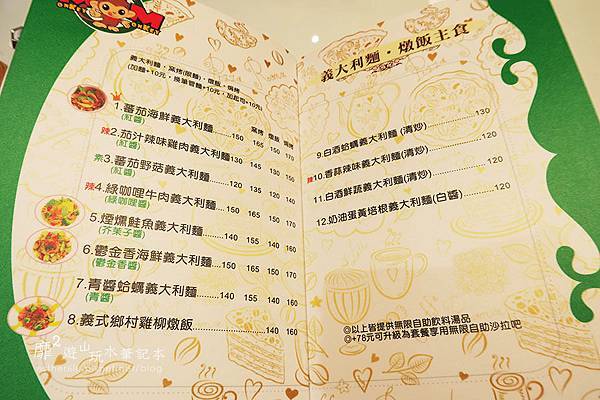 義大利麵・窯烤(限麵)・燉飯・焗烤
(加麵+10元，換筆管麵+10元，加起司+10元)
窯烤 燉飯 焗烤
1.番茄海鮮義大利麵......150 165 150 170
(紅醬)
辣2.茄汁辣味雞肉義大利麵130 145 130 150
(紅醬)
素3.蕃茄野菇義大利麵......120 135 120 140
(紅醬)
辣4.綠咖哩牛肉義大利麵...150 165 150 170
(綠咖哩醬)
5.煙燻鮭魚義大利麵......140 155 140 160
(芥茉子醬)
6.鬱金香海鮮義大利麵...150 165 150 170
(鬱金香醬)
7.青醬蛤蠣義大利麵......140 155 140 160
(青醬)
8.義式鄉村雞柳燉飯................140 160
義大利麵・燉飯主食
9.白酒蛤蠣義大利麵 (清炒)............130
辣10.香蒜辣味義大利麵(清炒)............120
11.白酒鮮蔬義大利麵(清炒)............120
12.奶油蛋黃培根義大利麵(白醬)......120
◎以上皆提供無限自助飲料湯品
◎+78元可升級為套餐享用無限自助沙拉吧
遊山玩水筆記本